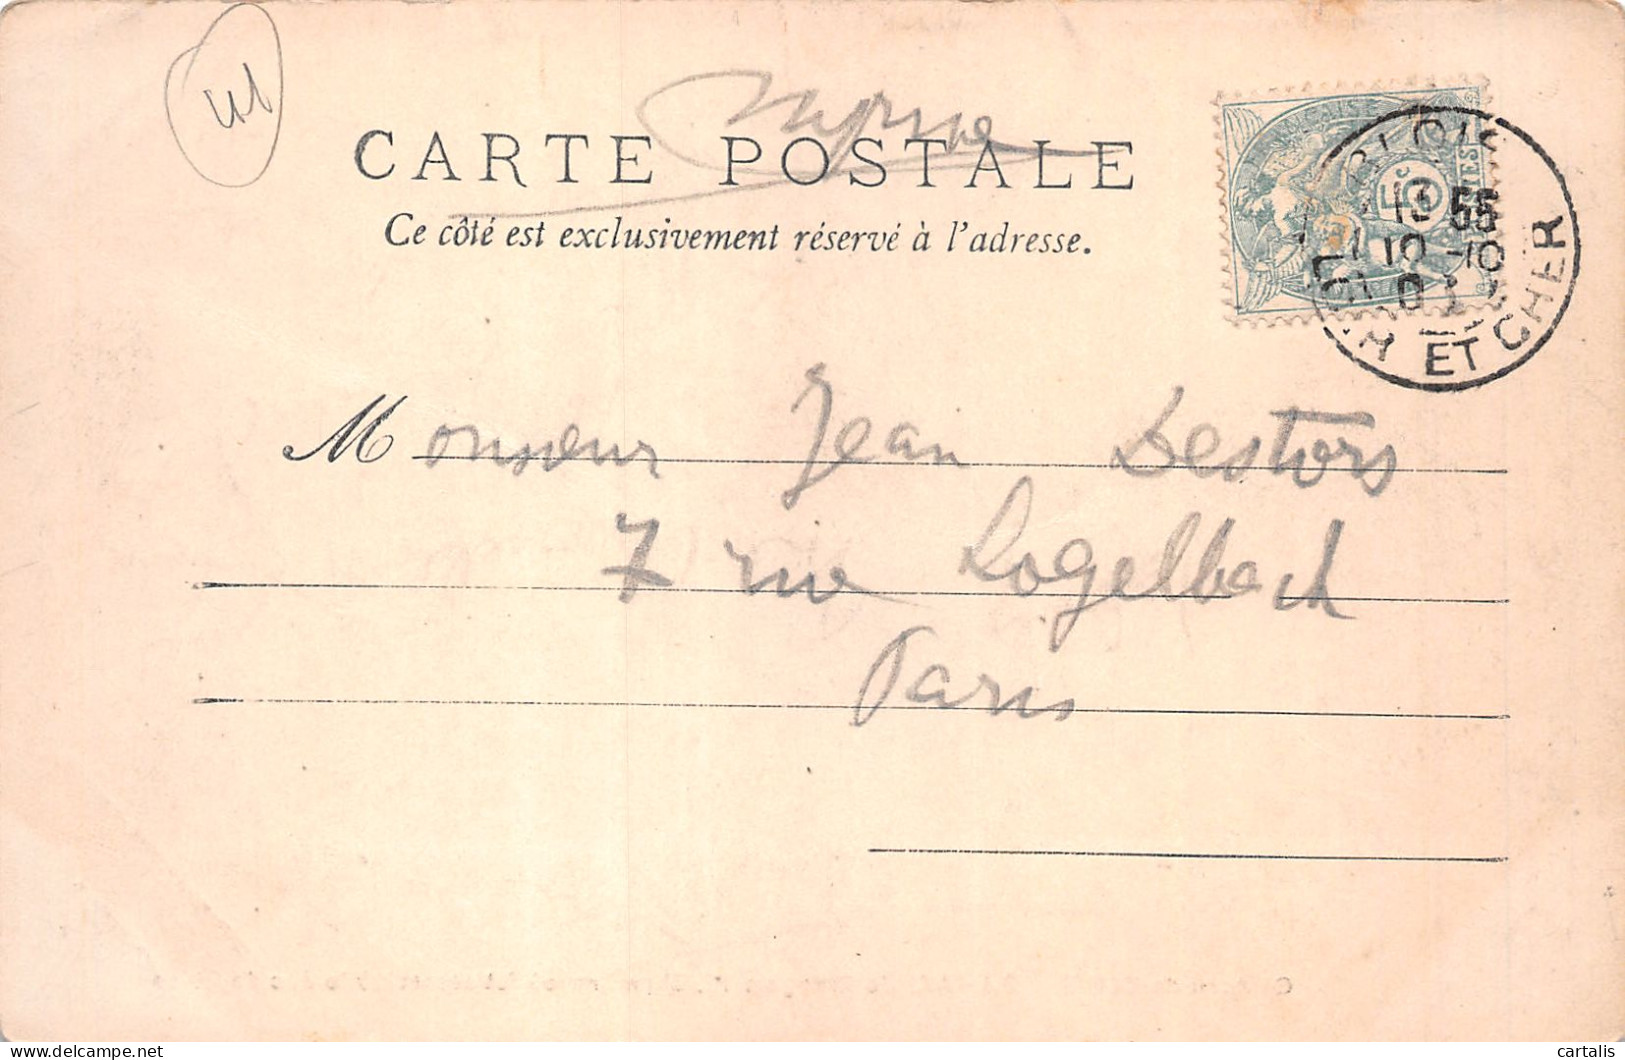 41
CARTE POSTALE
Ce côté est exclusivement réservé à l'adresse.
BLOIS
13 55
10 -10
03
LOIR ET CHER
5c
Monsieur Jean Destors
7 rue Logelbach
Paris
delcampe.net
cartalis